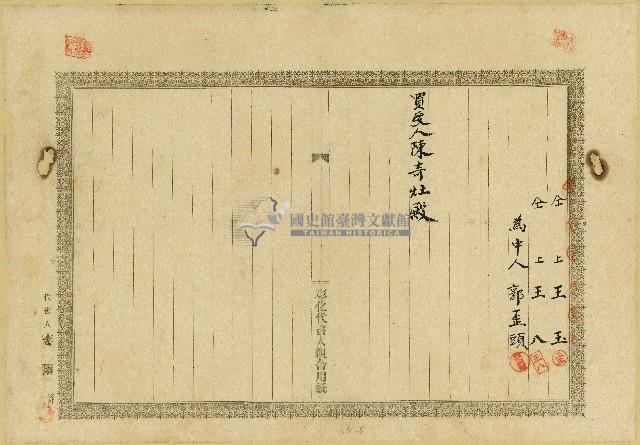 仝 上 王 玉
仝 上 王 八
為中人 郭歪頭
買受人陳奇灶殿
彰化代書人組合用紙
國史館臺灣文獻館
TAIWAN HISTORICA
代書人